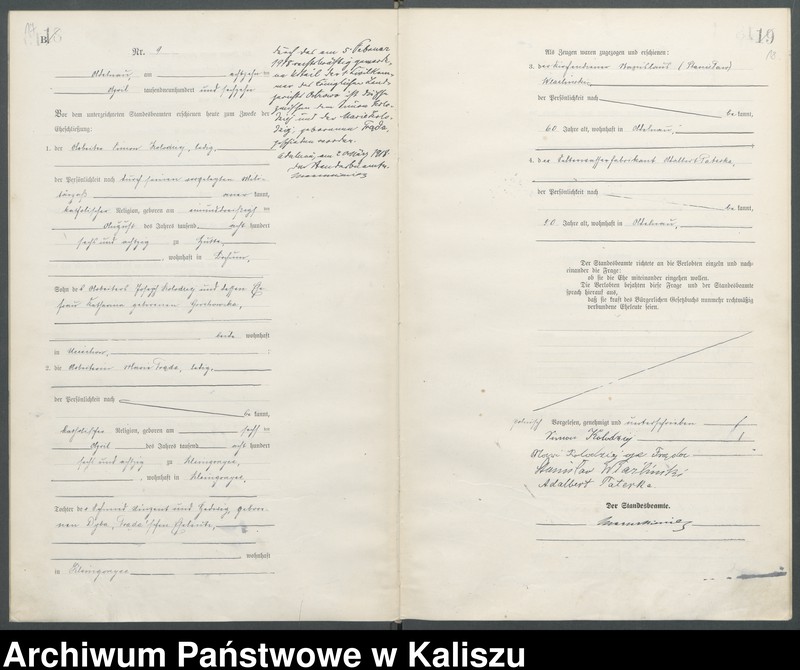 B
Nr. 9
Adelnau, am achtzehn ten
April tausendneunhundert und sechzehn
Vor dem unterzeichneten Standesbeamten erschienen heute zum Zwecke der
Eheschließung:
1. der Arbeiter Simon Kolodzig, ledig,
der Persönlichkeit nach durch seinen vorgelegten
kannt,
katholischer Religion, geboren am einunddreißigsten
August des Jahres tausend acht hundert
sechs und achtzig zu
, wohnhaft in Bochum,
Sohn des Arbeiters Joseph Kolodzig und dessen Ehe-
frau Katharina geborenen
beide wohnhaft
in
2. die Arbeiterin Maria Trąda, ledig,
der Persönlichkeit nach
be kannt,
katholischer Religion, geboren am sechs ten
April des Jahres tausend acht hundert
sechs und achtzig zu Kleingraben,
, wohnhaft in Kleingraben,
Tochter der Vinzent und Hedwig, gebore-
nen Dyba, Trąda'schen Eheleute,
wohnhaft
in Kleingraben
Durch das am 5. Februar
1918 rechtskräftig geword-
ene Urteil der Zivilkam-
mer des Königlichen Land-
gerichts Ostrowo ist die Ehe
zwischen dem Simon Kolo-
dzig und der Maria Kolo-
dzig, geborenen Trąda,
geschieden worden.
Adelnau, am 2. März 1918.
Der Standesbeamte.
19
Als Zeugen waren zugezogen und erschienen:
3. der Kirchendiener (Stanislaus)
der Persönlichkeit nach
be kannt,
60 Jahre alt, wohnhaft in Adelnau,
4. der Selterwasserfabrikant Adalbert Taterka,
der Persönlichkeit nach
be kannt,
Jahre alt, wohnhaft in Adelnau,
Der Standesbeamte richtete an die Verlobten einzeln und nach-
einander die Frage:
ob sie die Ehe miteinander eingehen wollen.
Die Verlobten bejahten diese Frage und der Standesbeamte
sprach hierauf aus,
daß sie kraft des Bürgerlichen Gesetzbuchs nunmehr rechtmäßig
verbundene Eheleute seien.
polnisch Vorgelesen, genehmigt und unterschrieben
Simon Kolodzig
Kolodzig geb Trąda
Stanisław Właźliński
Adalbert Taterka
Der Standesbeamte.
Archiwum Państwowe w Kaliszu